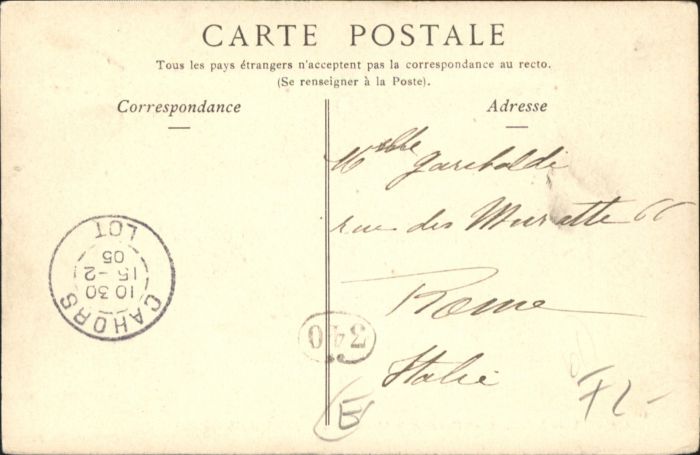 CARTE POSTALE
Tous les pays étrangers n'acceptent pas la correspondance au recto.
(Se renseigner à la Poste).
Correspondance
Adresse
Mlle Garibaldi
rue des Muratte 66
Rome
Italie
CAHORS
10 30
15 -2
05
LOT
340
E